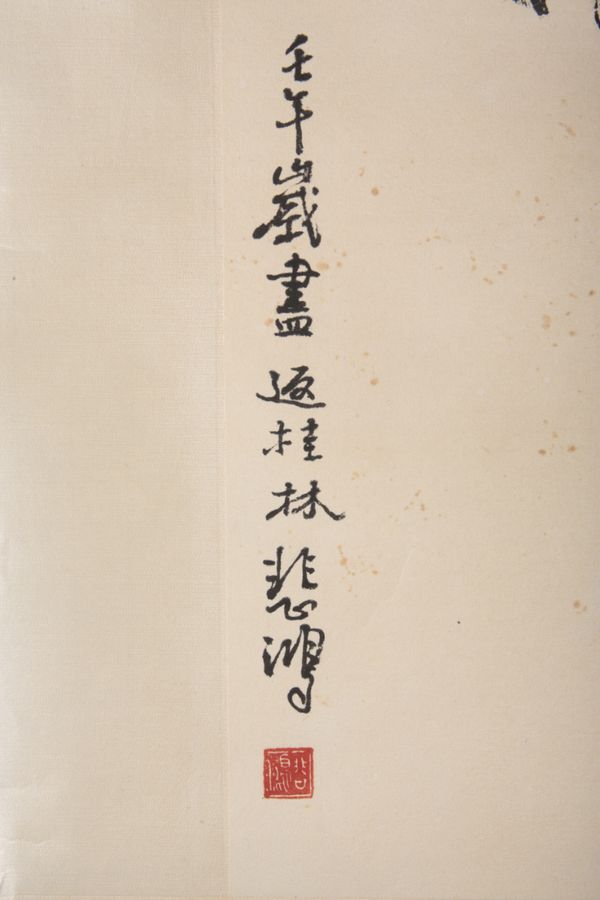 壬午歲盡返桂林悲鴻